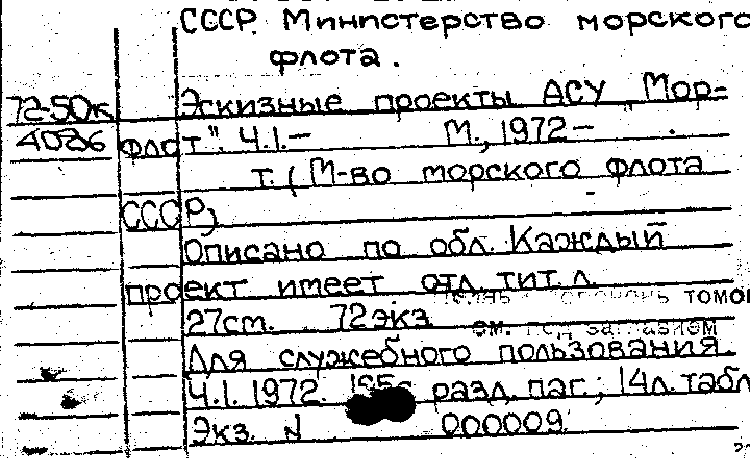 СССР. Министерство морского
флота.
72-50к Эскизные проекты АСУ „Мор-
4036 флот". Ч.1.— М., 1972—
т. (М-во морского флота
СССР)
Описано по обл. Каждый
проект имеет отл. тит. л.
томов
27см. 72экз см. под заглавием
Для служебного пользования.
Ч.1. 1972. разд. паг.; 14л. табл
Экз. N 000009